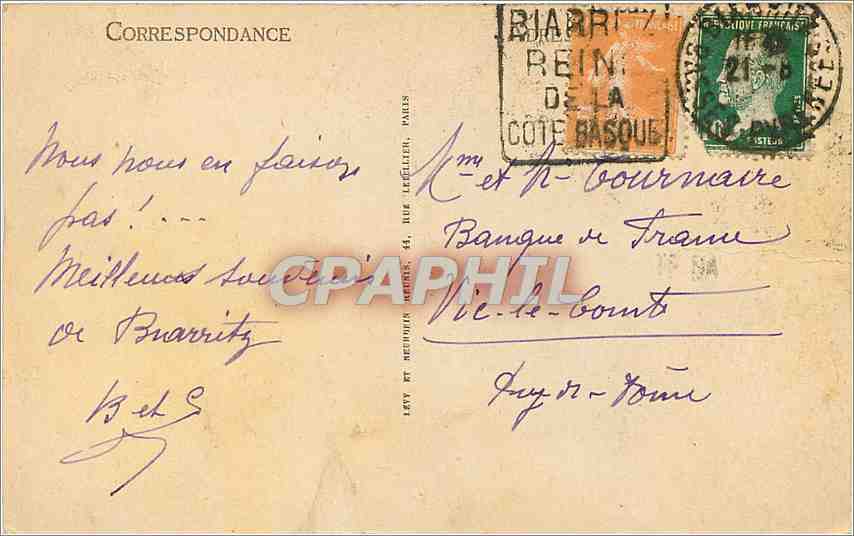 CORRESPONDANCE
BIARRITZ
REINE
DE LA
CÔTE BASQUE
RÉPUBLIQUE FRANÇAISE
21-8
PASTEUR
Nous nous en faisons
pas! ...
Meilleurs souvenirs
de Biarritz
B et G
LEVY ET NEURDEIN RÉUNIS, 44, RUE LETELLIER, PARIS
Mme et Mr Tournaire
Banque de France
Vic-le-Comte
Puy-de-Dôme
CPAPHIL